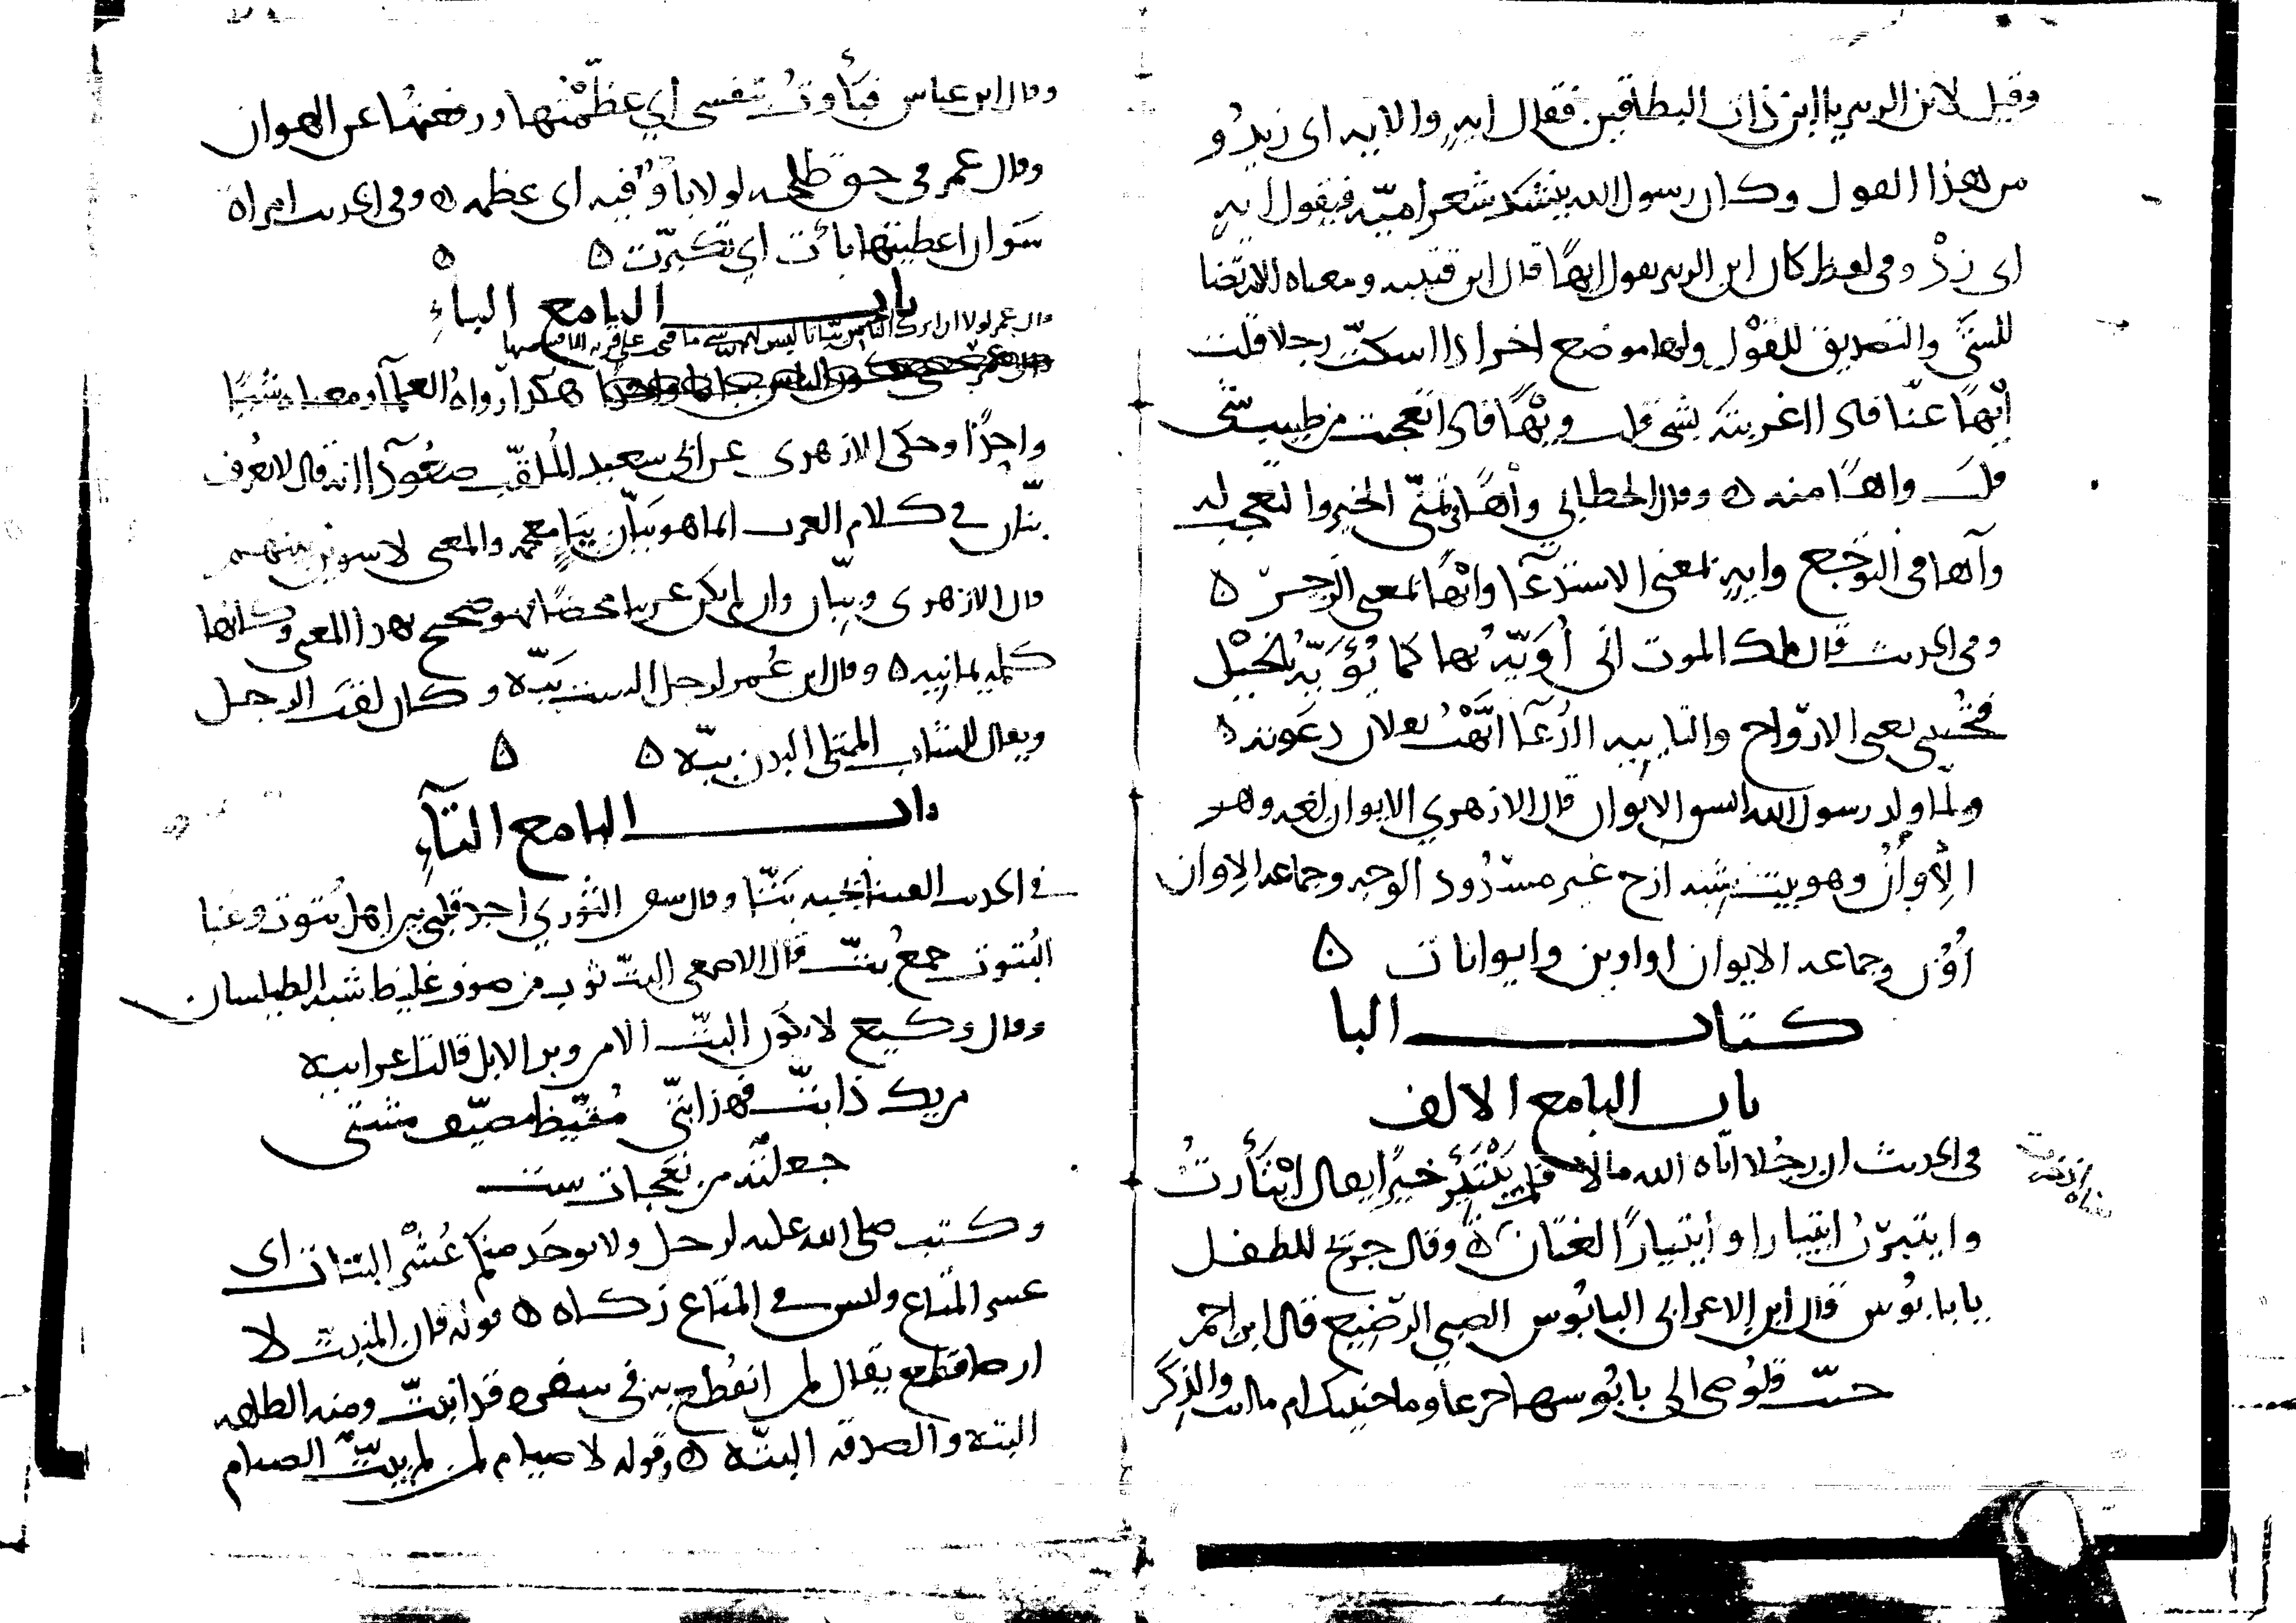 وقيل لابن الزبير يا ابن ذات النطاقين فقال ايهِ والاله اى زيدُو
من هذا القول وكان رسول الله ينشد شعر اميّه فيقول ايهِ
اى زدْ وفى لفظ كان ابن الزبير يقول ايهًا قال ابن قتيبه ومعناه الارتضا
للشئ والتصديق للقوْل ولها موضع اخر اذا اسكتّ رجلا قلت
اْيهًا عنّا فاذا اغريته بشى قلت ويْهًا فاذا تعجبت من طيب شى
قلت واهًا منه ه وقال الخطابي واهًا فى تمنّي الخير والتعجب له
وآها فى التوجّع وايهِ بمعنى الاستدعآ وايْهًا بمعنى الزجر ه
وفى الحديث قال ملك الموت انى أُوَيّهُ بها كما يُؤيَّهُ بالخيْل
فتُجيبنى يعنى الارْواح والتاييه الدُعآ ايَّهْتُ بفلان دعَوته ه
ولمّا ولد رسول الله ارتجس الايوان قال الازهري الايوان لغه وهو
الِاوَانُ وهو بيت شبه ازج غير مسْدُود الوجه وجماعه الاِوان
اُوُن وجماعه الايوان اواوين وايوانات ه
كتاب البا
باب البا مع الالف
فى الحديث ان رجُلا اتاه الله مالا فلم يَبْتَئِرْ خيرًا يقال ابْتَأرتُ
وايتبرْتُ ابتيارا وايتبارًا لغتان ه وقال جريج للطفل
يابابوُس قال ابن الاعرابى البابُوس الصبي الرّضيع قال ابن احمر
حنّت قلُوصى الى بابُوسها جزعا وما حنينك ام ما انت والذِكَر
وقال ابن عباس فبَأوتُ بنفسى اي عظّمْتها ورفعتُها عن الهوان
وقال عمر فى حق طلحه لولا بأوٌ فيه اى عظمه ه وفى الحديث امراة
سَوْان اعطيتها بأت اي تكبّرت ه
باب البا مع الباءِ
قال عمر لولا ان اترك الناس ببّانا ليس لهم شى ما فتحت على قريه الا قسمتها
هكذا رواهُ العلمآ ومعناه شيًا
واحِدًا وحكى الازهرى عن ابى سعيد المُلقّب صعُودًا انه قال لا نعْرف
ببّان فى كلام العرب انما هو بيّان بيَاءٍ معجمه والمعنى لاسوينّ بينهم
قال الازهرى وببّان وان لم يكن عربيا محضًا فهو صحيح بهذا المعنى وكانها
كلمه يمانيه ه وقال ابن عُمر لرجل الست بَبّه وكان لقب الرجل
ويقال للشاب الممتلى البدن ببّه ه
باب البا مع التآءِ
فى الحديث بَتّتا وقال سفين الثوري اجد قلبي بين اهل بُتوت وعَبا
البُتوت جمع بتّ قال الاصمعى البتّ ثوب من صوف غليظ شبه الطيلسان
وقال وكيع لا يكوُن البتّ الا من وبر الابل قالت اعرابيه
من يك ذا بتّ فهذا بتّى مُقيّظ مصيّف مشتى
جعلتُه من نعجات ست
وكتب صلى الله عليه لرجل ولا يوخَد منكم عُشْر البتات اى
عشر المتاع وليس فى المتاع زكاه ه قوله فان المنبتّ لا
ارضا قطع يقال لمن انقُطع به فى سفره قد انبتّ ومنه الطلاق
البته والصدقه البتّه ه وقوله لا صيام لمن لم يبتّ الصيام